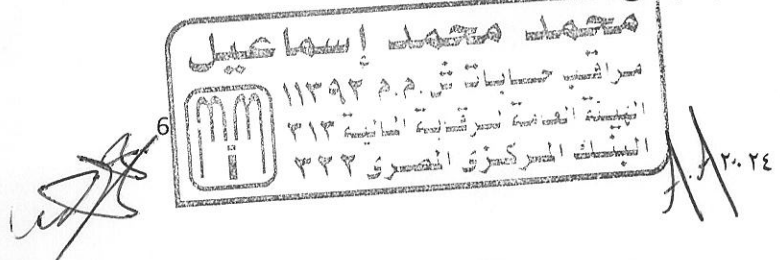 محمد محمد إسماعيل
مراقب حسابات ش.م.م ١١٣٩٢
الهيئة العامة للرقابة المالية ٣١٣
البنك المركزى المصرى ٣٢٢
6
٢٠٢٤